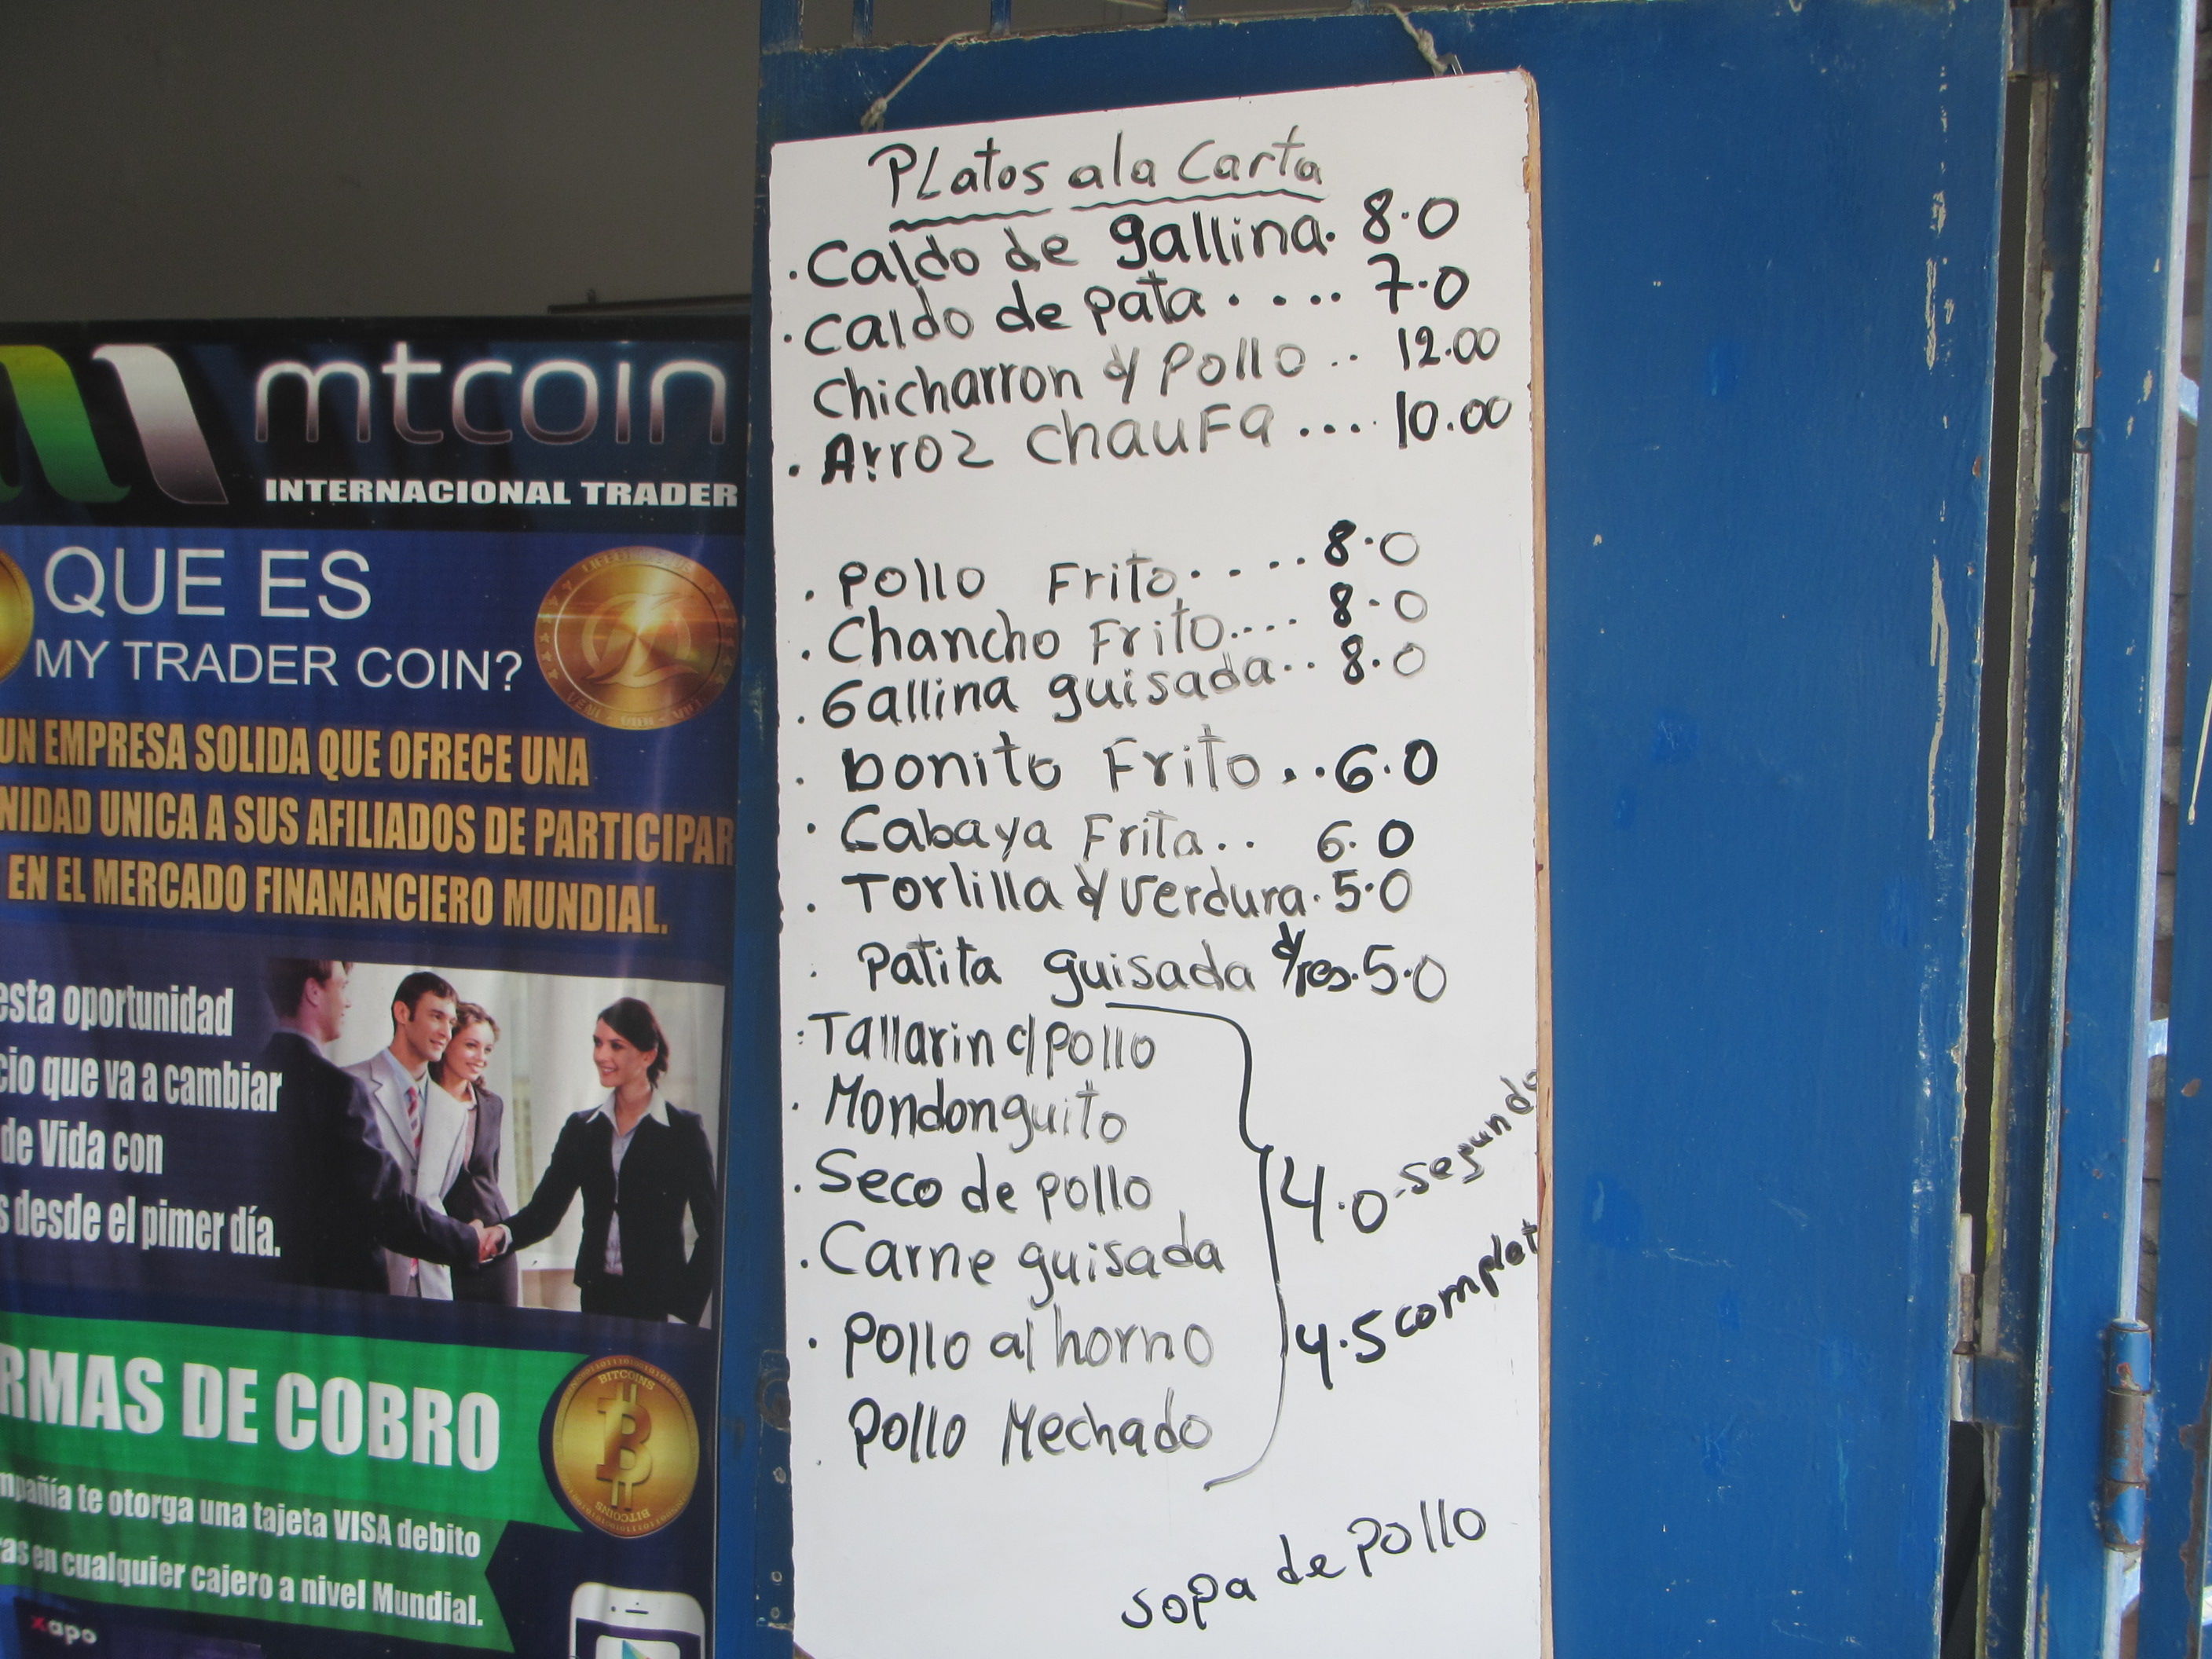 mtcoin
INTERNACIONAL TRADER
QUE ES
MY TRADER COIN?
UN EMPRESA SOLIDA QUE OFRECE UNA
NIDAD UNICA A SUS AFILIADOS DE PARTICIPAR
EN EL MERCADO FINANANCIERO MUNDIAL.
esta oportunidad
cio que va a cambiar
de Vida con
s desde el pimer día.
RMAS DE COBRO
BITCOINS
BITCOINS
mpañía te otorga una tajeta VISA debito
as en cualquier cajero a nivel Mundial.
xapo
PLatos ala Carta
. Caldo de gallina. 8.0
. Caldo de pata .... 7.0
Chicharron d/ Pollo .. 12.00
. Arroz ChauFa .... 10.00
. Pollo Frito .... 8.0
. Chancho Frito .... 8.0
. Gallina guisada .. 8.0
. bonito Frito .. 6.0
. Cabaya Frita .. 6.0
. Tortilla d/ Verdura . 5.0
. Patita guisada d/res. 5.0
. Tallarin c/pollo
. Mondonguito
. Seco de pollo
. Carne guisada
. Pollo al horno
. Pollo Mechado
4.0 - segundo
4.5 complet
Sopa de Pollo